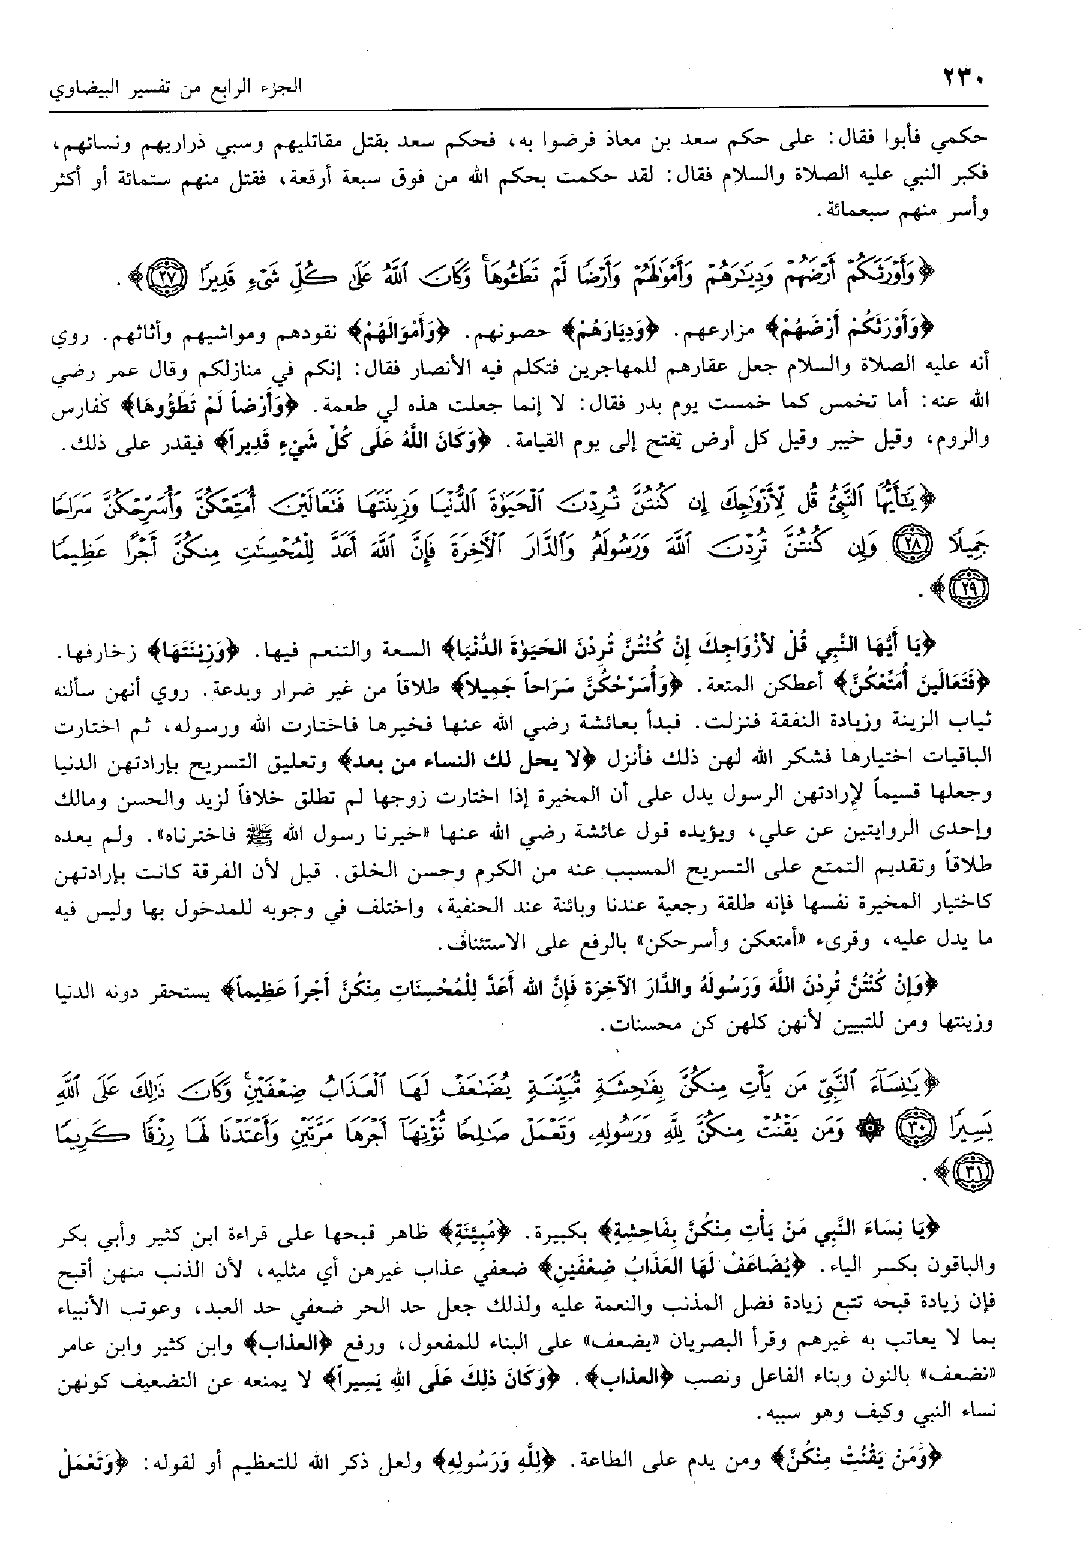 ٢٣٠
الجزء الرابع من تفسير البيضاوي
حكمي فأبوا فقال: على حكم سعد بن معاذ فرضوا به، فحكم سعد بقتل مقاتليهم وسبي ذراريهم ونسائهم،
فكبر النبي عليه الصلاة والسلام فقال: لقد حكمت بحكم الله من فوق سبعة أرقعة، فقتل منهم ستمائة أو أكثر
وأسر منهم سبعمائة.
﴿وَأَوْرَثَكُمْ أَرْضَهُمْ وَدِيَٰرَهُمْ وَأَمْوَٰلَهُمْ وَأَرْضًا لَّمْ تَطَـُٔوهَا ۚ وَكَانَ ٱللَّهُ عَلَىٰ كُلِّ شَىْءٍ قَدِيرًا ٢٧﴾.
﴿وَأَوْرَثَكُمْ أَرْضَهُمْ﴾ مزارعهم. ﴿وَدِيَارَهُمْ﴾ حصونهم. ﴿وَأَمْوَالَهُمْ﴾ نقودهم ومواشيهم وأثاثهم. روي
أنه عليه الصلاة والسلام جعل عقارهم للمهاجرين فتكلم فيه الأنصار فقال: إنكم في منازلكم وقال عمر رضي
الله عنه: أما تخمس كما خمست يوم بدر فقال: لا إنما جعلت هذه لي طعمة. ﴿وَأَرْضاً لَمْ تَطَؤُوهَا﴾ كفارس
والروم، وقيل خيبر وقيل كل أرض تفتح إلى يوم القيامة. ﴿وَكَانَ اللَّهُ عَلَى كُلِّ شَيْءٍ قَدِيراً﴾ فيقدر على ذلك.
﴿يَٰٓأَيُّهَا ٱلنَّبِىُّ قُل لِّأَزْوَٰجِكَ إِن كُنتُنَّ تُرِدْنَ ٱلْحَيَوٰةَ ٱلدُّنْيَا وَزِينَتَهَا فَتَعَالَيْنَ أُمَتِّعْكُنَّ وَأُسَرِّحْكُنَّ سَرَاحًا
جَمِيلًا ٢٨ وَإِن كُنتُنَّ تُرِدْنَ ٱللَّهَ وَرَسُولَهُۥ وَٱلدَّارَ ٱلْآخِرَةَ فَإِنَّ ٱللَّهَ أَعَدَّ لِلْمُحْسِنَٰتِ مِنكُنَّ أَجْرًا عَظِيمًا
٢٩﴾.
﴿يَا أَيُّهَا النَّبِي قُلْ لأَزْوَاجِكَ إِنْ كُنْتُنَّ تُرِدْنَ الحَيَوٰةَ الدُّنْيَا﴾ السعة والتنعم فيها. ﴿وَزِينَتَهَا﴾ زخارفها.
﴿فَتَعَالَينَ أُمَتِّعْكُنَّ﴾ أعطكن المتعة. ﴿وَأُسَرِّحْكُنَّ سَرَاحاً جَمِيلاً﴾ طلاقاً من غير ضرار وبدعة. روي أنهن سألنه
ثياب الزينة وزيادة النفقة فنزلت. فبدأ بعائشة رضي الله عنها فخيرها فاختارت الله ورسوله، ثم اختارت
الباقيات اختيارها فشكر الله لهن ذلك فأنزل ﴿لا يحل لك النساء من بعد﴾ وتعليق التسريح بإرادتهن الدنيا
وجعلها قسيماً لإرادتهن الرسول يدل على أن المخيرة إذا اختارت زوجها لم تطلق خلافاً لزيد والحسن ومالك
وإحدى الروايتين عن علي، ويؤيده قول عائشة رضي الله عنها «خيرنا رسول الله ﷺ فاخترناه». ولم يعده
طلاقاً وتقديم التمتع على التسريح المسبب عنه من الكرم وحسن الخلق. قيل لأن الفرقة كانت بإرادتهن
كاختيار المخيرة نفسها فإنه طلقة رجعية عندنا وبائنة عند الحنفية، واختلف في وجوبه للمدخول بها وليس فيه
ما يدل عليه، وقرىء «أمتعكن وأسرحكن» بالرفع على الاستئناف.
﴿وَإِنْ كُنْتُنَّ تُرِدْنَ اللَّهَ وَرَسُولَهُ والدَّارَ الآخِرَةَ فَإِنَّ الله أَعَدَّ لِلْمُحْسِنَاتِ مِنْكُنَّ أَجراً عَظِيماً﴾ يستحقر دونه الدنيا
وزينتها ومن للتبيين لأنهن كلهن كن محسنات.
﴿يَٰنِسَآءَ ٱلنَّبِىِّ مَن يَأْتِ مِنكُنَّ بِفَٰحِشَةٍ مُّبَيِّنَةٍ يُضَٰعَفْ لَهَا ٱلْعَذَابُ ضِعْفَيْنِ ۚ وَكَانَ ذَٰلِكَ عَلَى ٱللَّهِ
يَسِيرًا ٣٠ ۞ وَمَن يَقْنُتْ مِنكُنَّ لِلَّهِ وَرَسُولِهِۦ وَتَعْمَلْ صَٰلِحًا نُّؤْتِهَآ أَجْرَهَا مَرَّتَيْنِ وَأَعْتَدْنَا لَهَا رِزْقًا كَرِيمًا
٣١﴾.
﴿يَا نِسَاءَ النَّبِي مَنْ يَأْتِ مِنْكُنَّ بِفَاحِشةٍ﴾ بكبيرة. ﴿مُبيَّنَةٍ﴾ ظاهر قبحها على قراءة ابن كثير وأبي بكر
والباقون بكسر الياء. ﴿يُضَاعَفْ لَهَا العَذَابُ ضِعْفَيْنِ﴾ ضعفي عذاب غيرهن أي مثليه، لأن الذنب منهن أقبح
فإن زيادة قبحه تتبع زيادة فضل المذنب والنعمة عليه ولذلك جعل حد الحر ضعفي حد العبد، وعوتب الأنبياء
بما لا يعاتب به غيرهم وقرأ البصريان «يضعف» على البناء للمفعول، ورفع ﴿العذاب﴾ وابن كثير وابن عامر
«نضعف» بالنون وبناء الفاعل ونصب ﴿العذاب﴾. ﴿وَكَانَ ذَلِكَ عَلَى اللهِ يَسِيراً﴾ لا يمنعه عن التضعيف كونهن
نساء النبي وكيف وهو سببه.
﴿وَمَنْ يَقْنُتْ مِنْكُنَّ﴾ ومن يدم على الطاعة. ﴿لِلَّهِ وَرَسُولِهِ﴾ ولعل ذكر الله للتعظيم أو لقوله: ﴿وَتَعْمَلْ